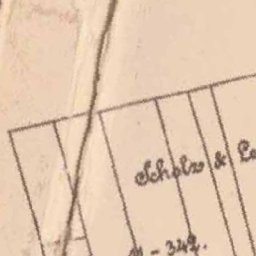 Scholz & Co
- 342.